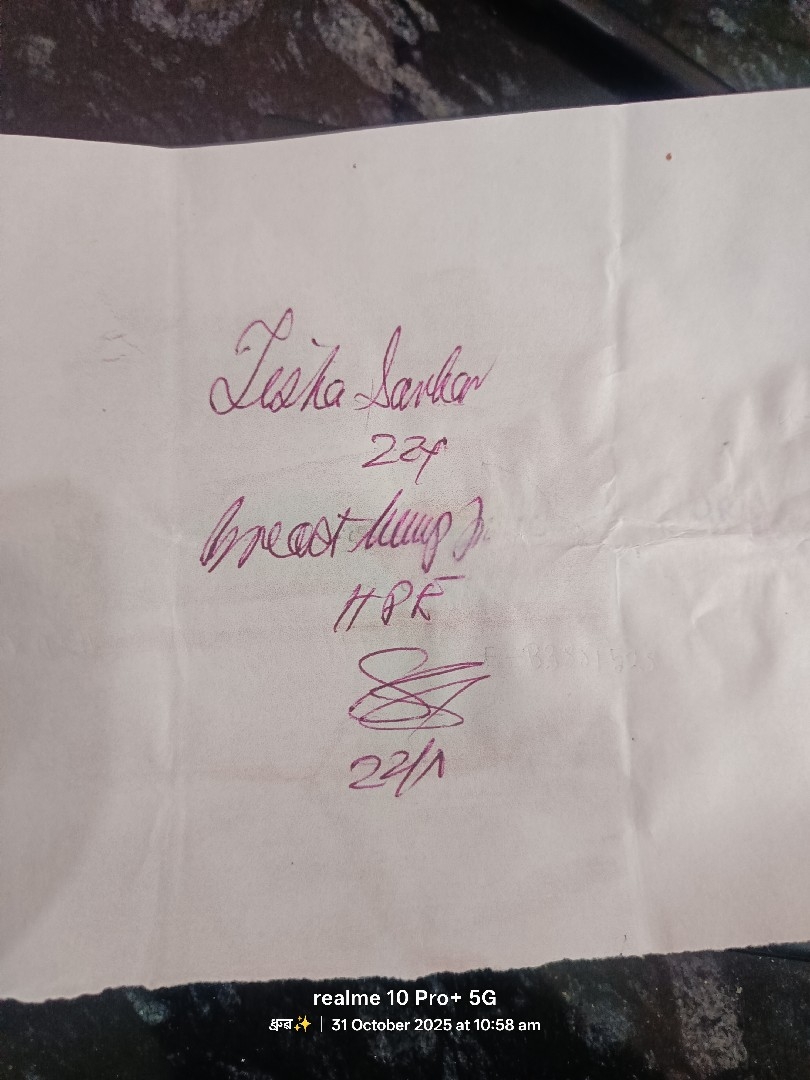 Tisha Sarkar
22y
Breast lump
HPE
22/1
realme 10 Pro+ 5G
ध्रुब✨ | 31 October 2025 at 10:58 am